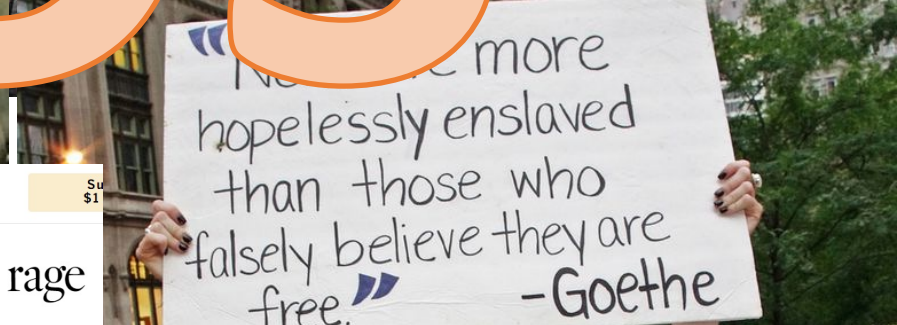 “
more
hopelessly enslaved
than those who
falsely believe they are
free.”
-Goethe
Su
$1
rage